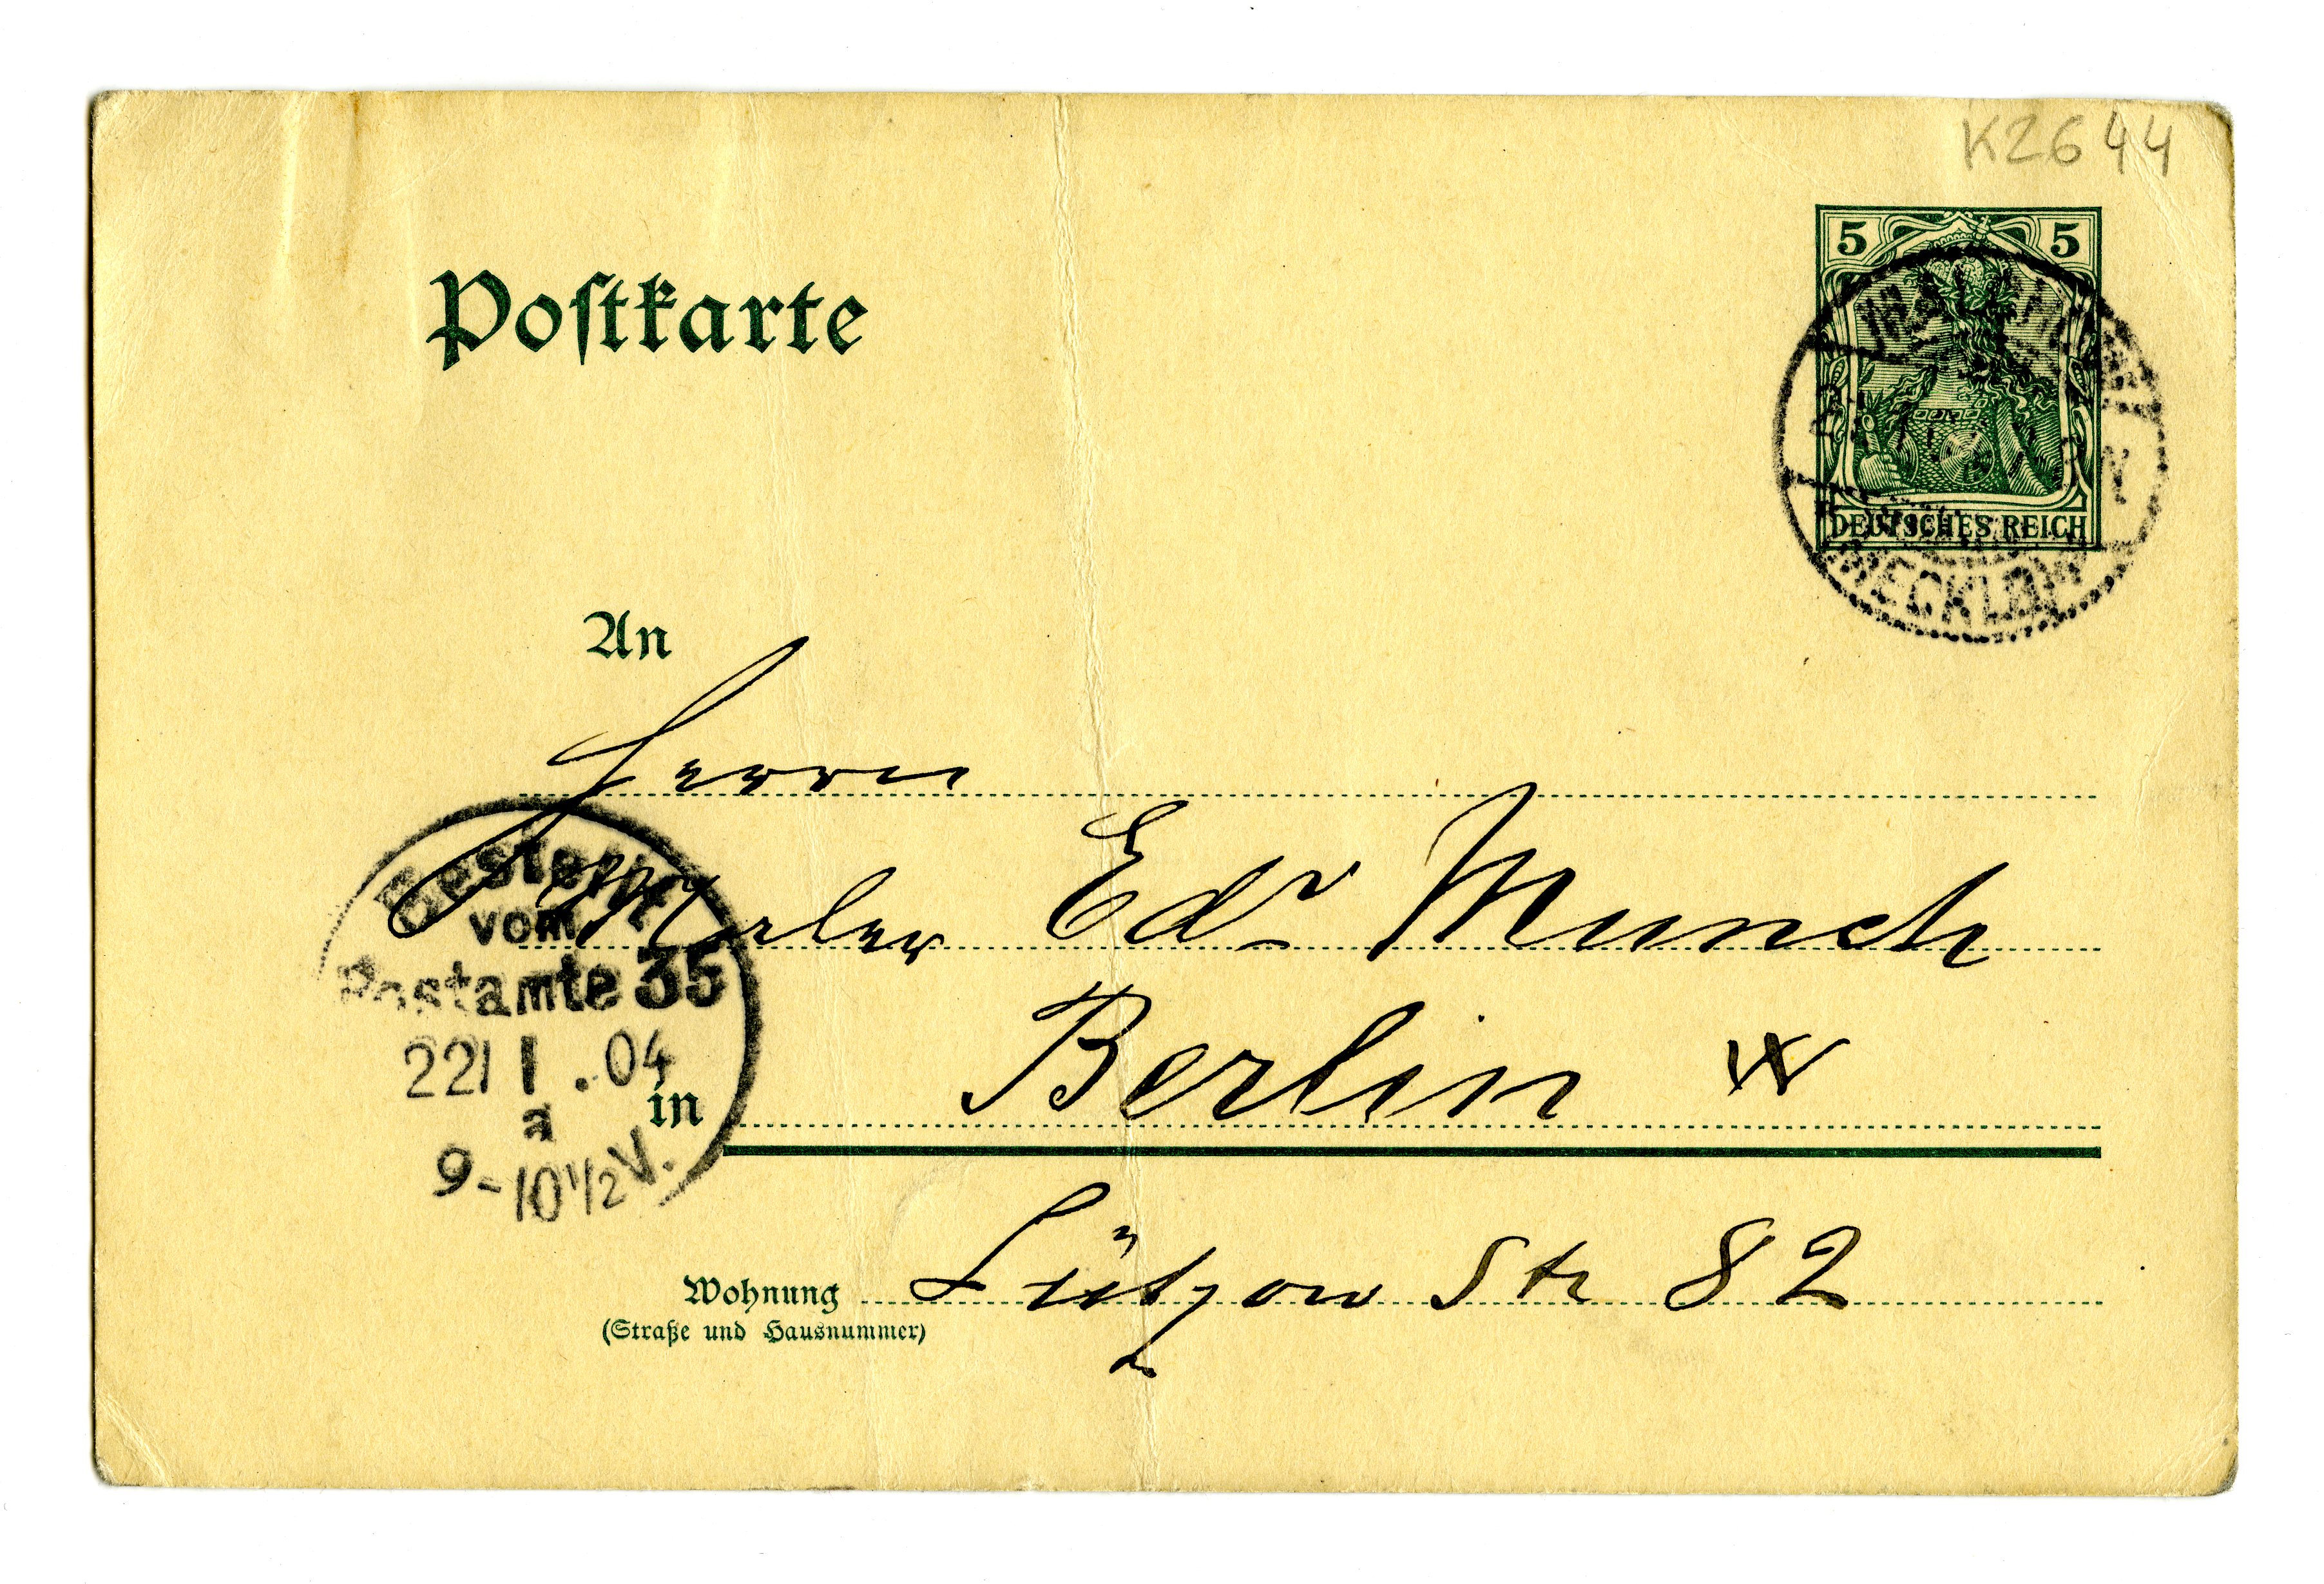 K2644
Postkarte
5 5
DEUTSCHES REICH
MECKLB
An
Herrn
Maler Edv Munch
in Berlin W
Wohnung Lützow Str 82
(Straße und Hausnummer)
Bestellt
vom
Postamte 35
22/1.04
a
9-10½V.